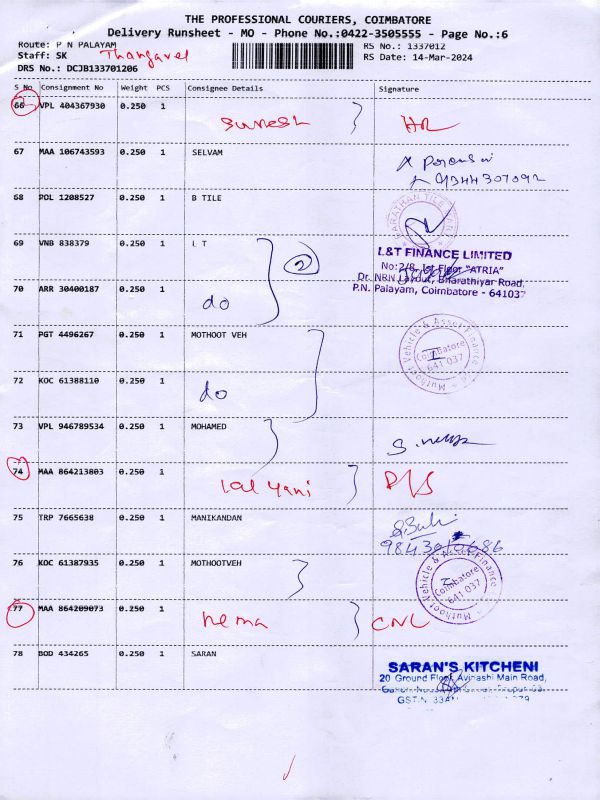 THE PROFESSIONAL COURIERS, COIMBATORE
Delivery Runsheet - MO - Phone No.:0422-3505555 - Page No.:6
Route: P N PALAYAM
RS No.: 1337012
Staff: SK Thangavel
RS Date: 14-Mar-2024
DRS No.: DCJB133701206
S No Consignment No Weight PCS Consignee Details Signature
66 VPL 404367930 0.250 1
Suresh
67 MAA 106743593 0.250 1 SELVAM
9344307092
68 POL 1208527 0.250 1 B TILE
69 VNB 838379 0.250 1 L T
2
L&T FINANCE LIMITED
1st Floor "ATRIA"
Dr. NRN Layout, Bharathiyar Road,
P.N. Palayam, Coimbatore - 641037
70 ARR 30400187 0.250 1
do
71 PGT 4496267 0.250 1 MOTHOOT VEH
Muthoot Vehicle & Asset Finance
Coimbatore
641 037
72 KOC 61388110 0.250 1
do
73 VPL 946789534 0.250 1 MOHAMED
74 MAA 864213803 0.250 1
Lalyani
75 TRP 7665638 0.250 1 MANIKANDAN
76 KOC 61387935 0.250 1 MOTHOOTVEH
Muthoot Vehicle & Asset Finance
Coimbatore
641 037
77 MAA 864209073 0.250 1
hema
78 BOD 434265 0.250 1 SARAN
SARAN'S KITCHENI
20 Ground Floor, Avinashi Main Road,